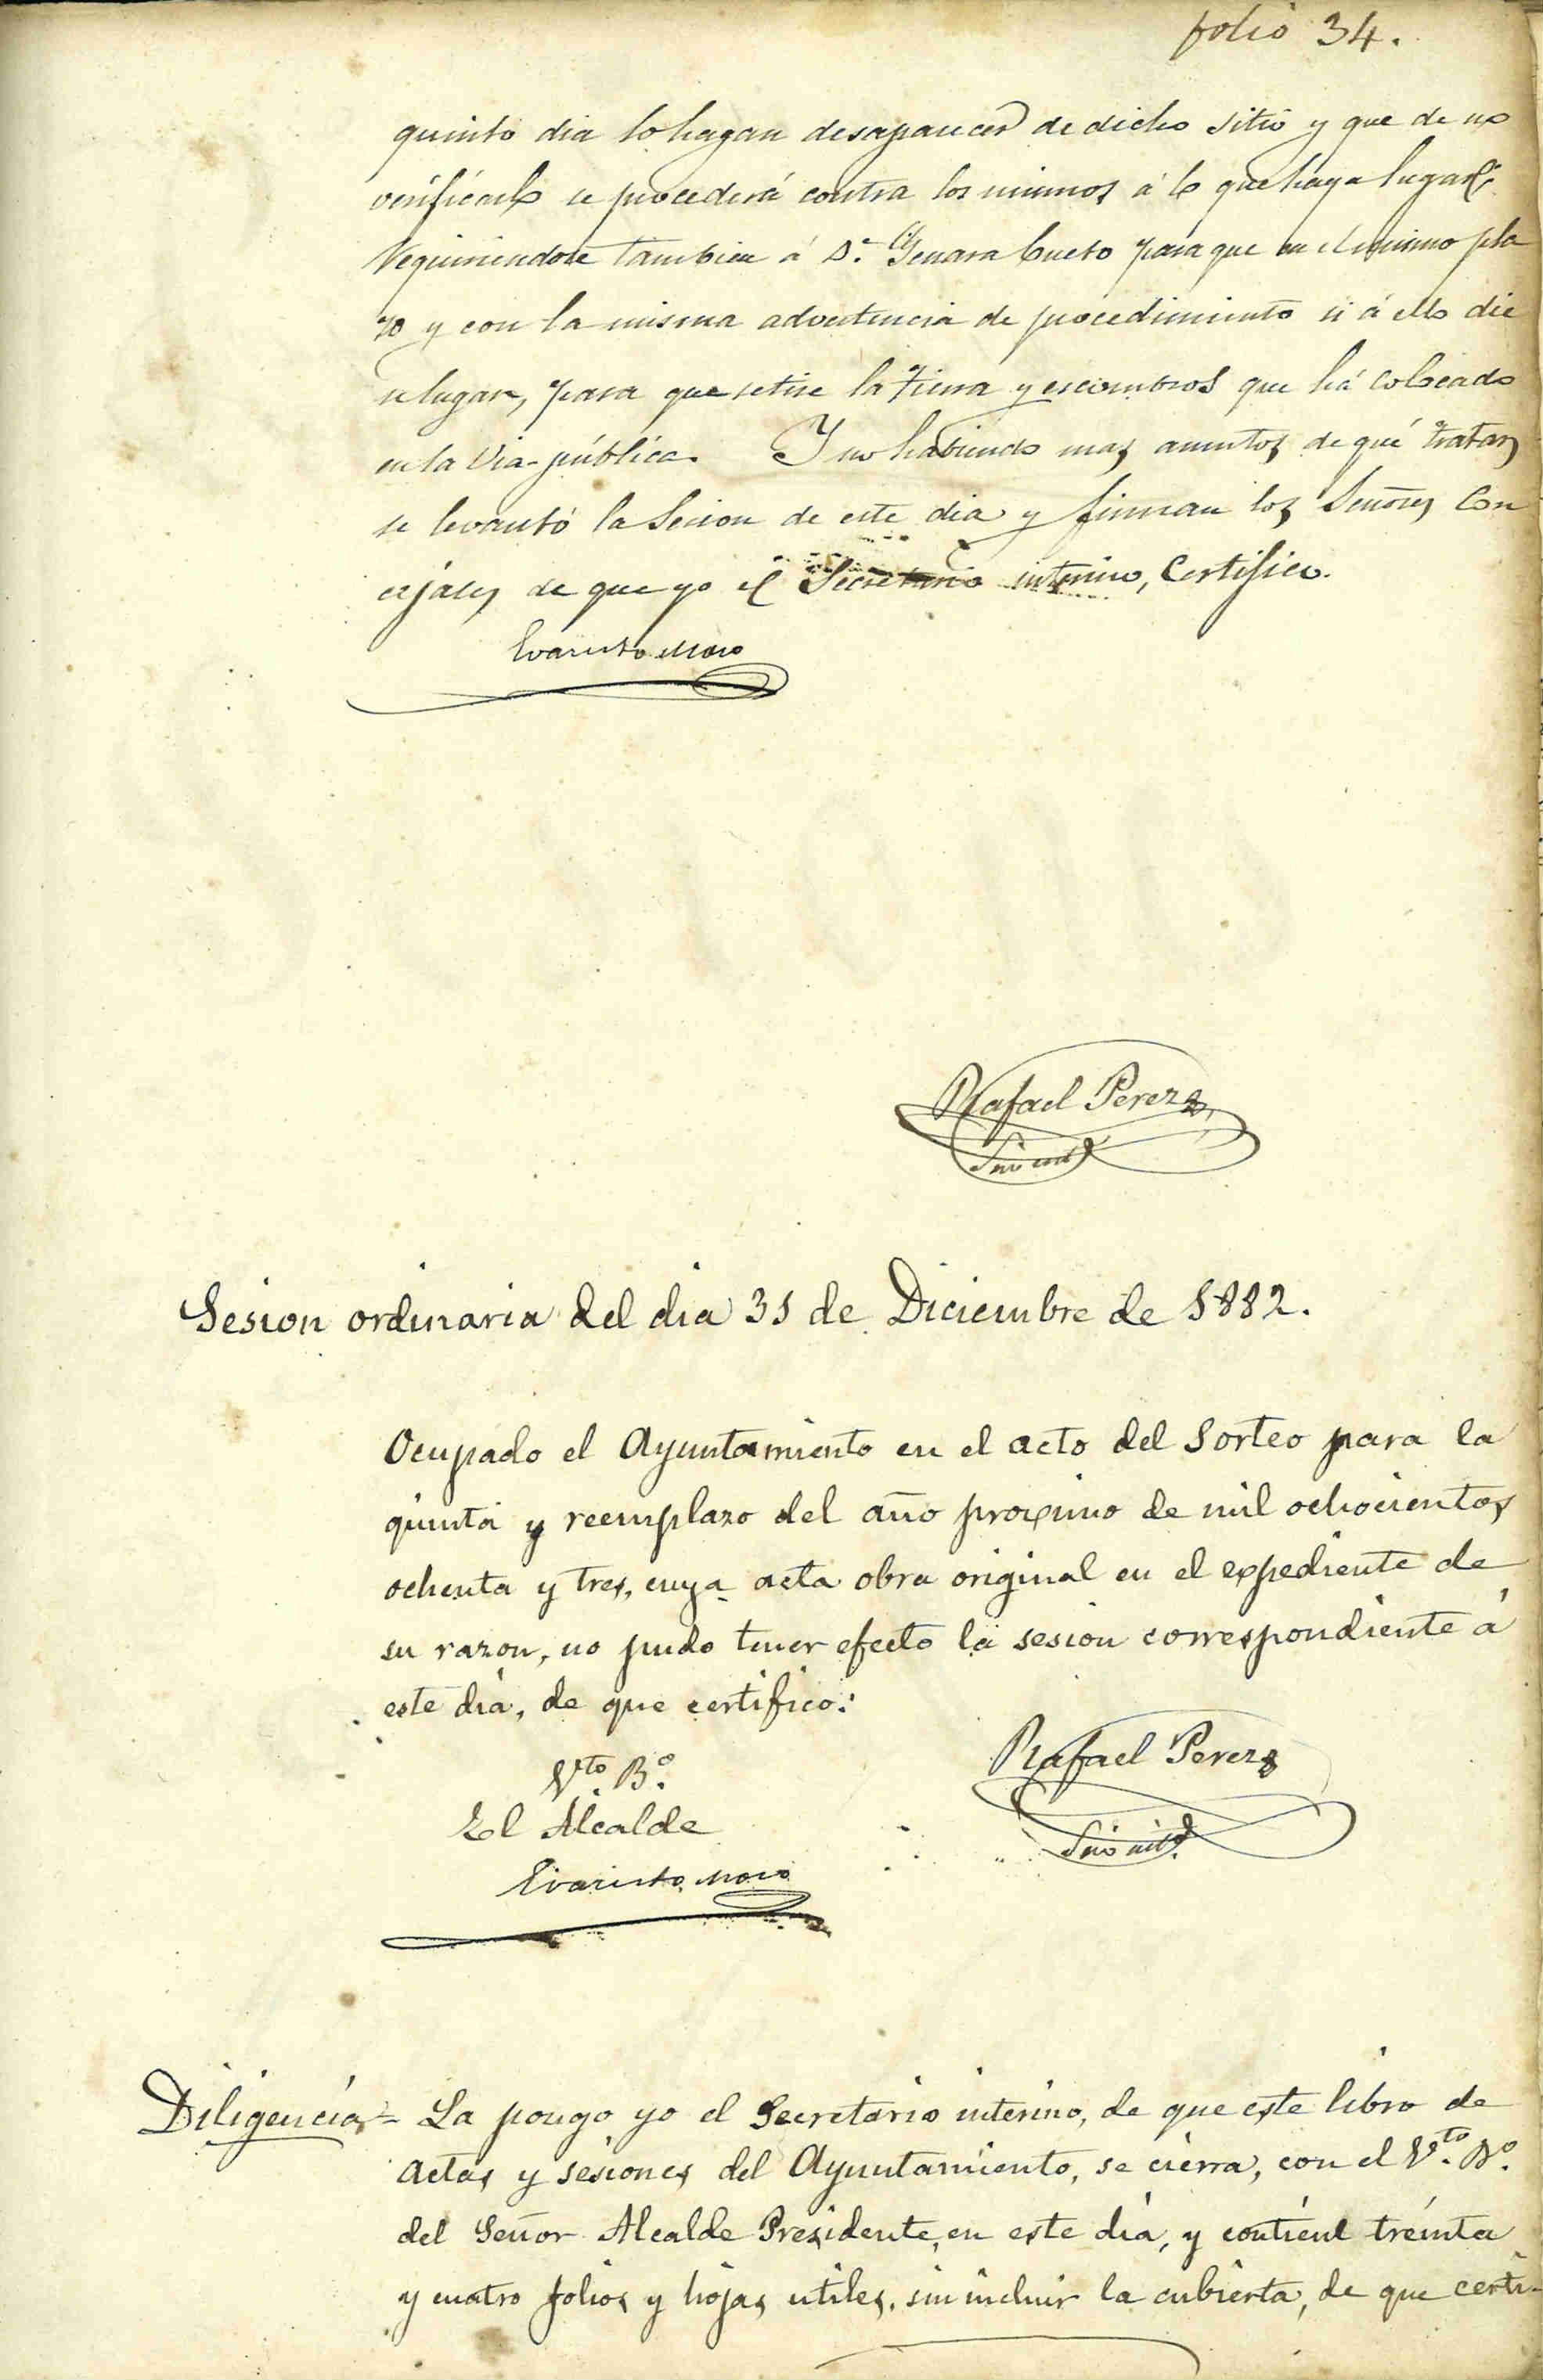 folio 34.
quinto dia lo hagan desaparecer de dicho sitio y que de no
verificarlo se procederá contra los mismos á lo que haya lugar.
Requiriendose tambien á D.ª Genara Cueto para que en el mismo pla
zo y con la misma advertencia de procedimiento si á ello die
se lugar, para que retire la tierra y escombros que há colocado
en la via pública. Y no habiendo mas asuntos de qué tratar
se levantó la Sesion de este dia y firman los Señores Con
cejales de que yo el Secretario interino, Certifico.
Evaristo Moro
Rafael Perez
Srio
Sesion ordinaria del dia 31 de Diciembre de 1882.
Ocupado el Ayuntamiento en el acto del Sorteo para la
quinta y reemplazo del año proximo de mil ochocientos
ochenta y tres, cuya acta obra original en el expediente de
su razon, no pudo tener efecto la sesion correspondiente á
este dia, de que certifico:
Vto. Bº.
El Alcalde
Rafael Perez
Srio int.º
Evaristo Moro
Diligencia = La pongo yo el Secretario interino, de que este libro de
actas y sesiones del Ayuntamiento, se cierra, con el Vto. Bº.
del Señor Alcalde Presidente, en este dia, y contiene treinta
y cuatro folios y hojas utiles, sin incluir la cubierta, de que certi-